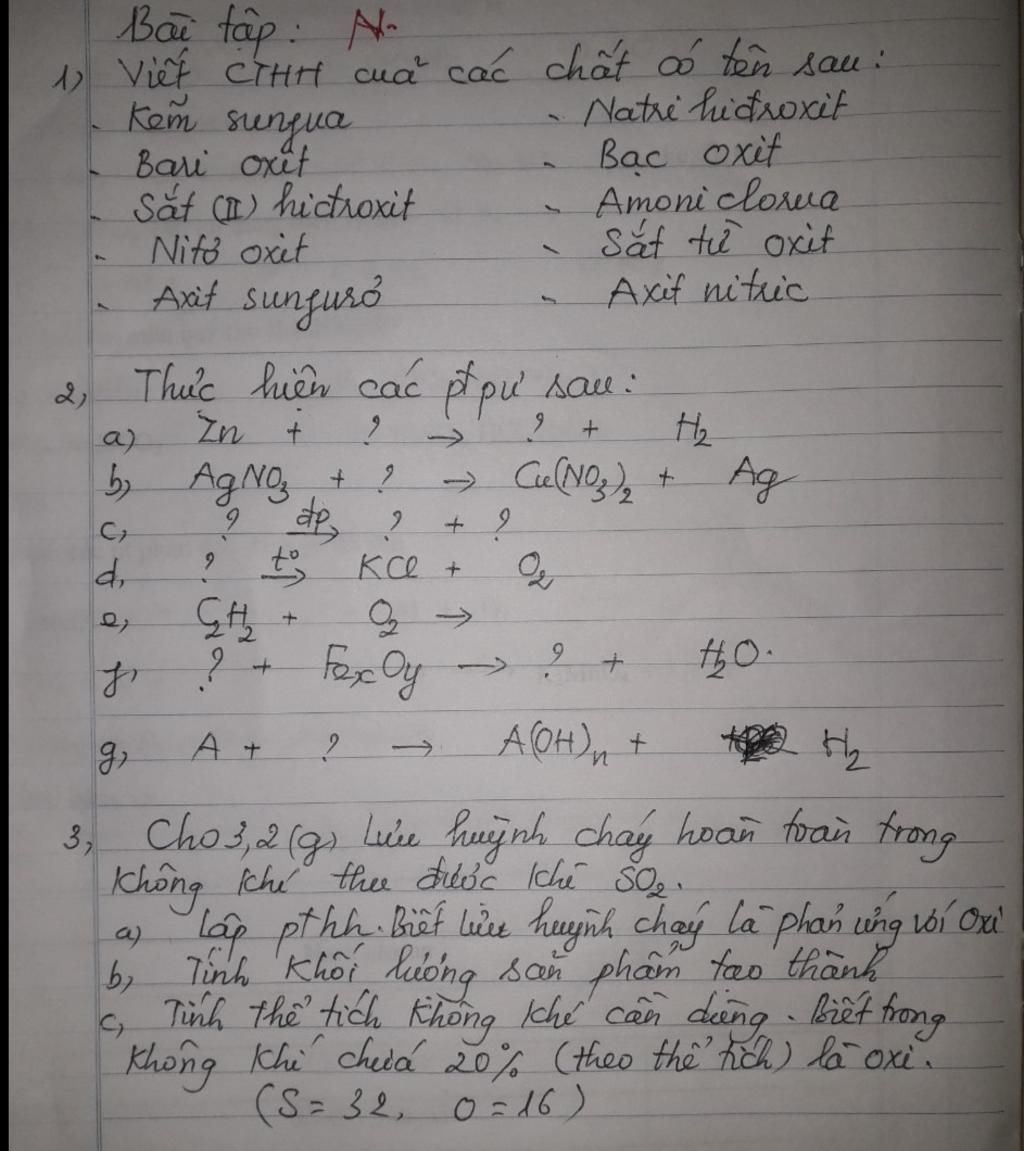 Bài tập: N.
1) Viết CTHH của các chất có tên sau:
- Kẽm sunfua - Natri hiđroxit
- Bari oxit - Bạc oxit
- Sắt (II) hiđroxit - Amoni clorua
- Nitơ oxit - Sắt từ oxit
- Axit sunfurơ - Axit nitric
2, Thực hiện các ptpư sau:
a) Zn + ? → ? + H₂
b, AgNO₃ + ? → Cu(NO₃)₂ + Ag
c, ? đp→ ? + ?
d, ? t°→ KCl + O₂
e, C₂H₂ + O₂ →
f, ? + FexOy → ? + H₂O.
g, A + ? → A(OH)n + H₂
3, Cho 3,2 (g) Lưu huỳnh cháy hoàn toàn trong
không khí thu được khí SO₂.
a) Lập pthh. Biết lưu huỳnh cháy là phản ứng với Oxi
b, Tính khối lượng sản phẩm tạo thành
c, Tính thể tích không khí cần dùng. Biết trong
không khí chứa 20% (theo thể tích) là oxi.
(S = 32, O = 16)